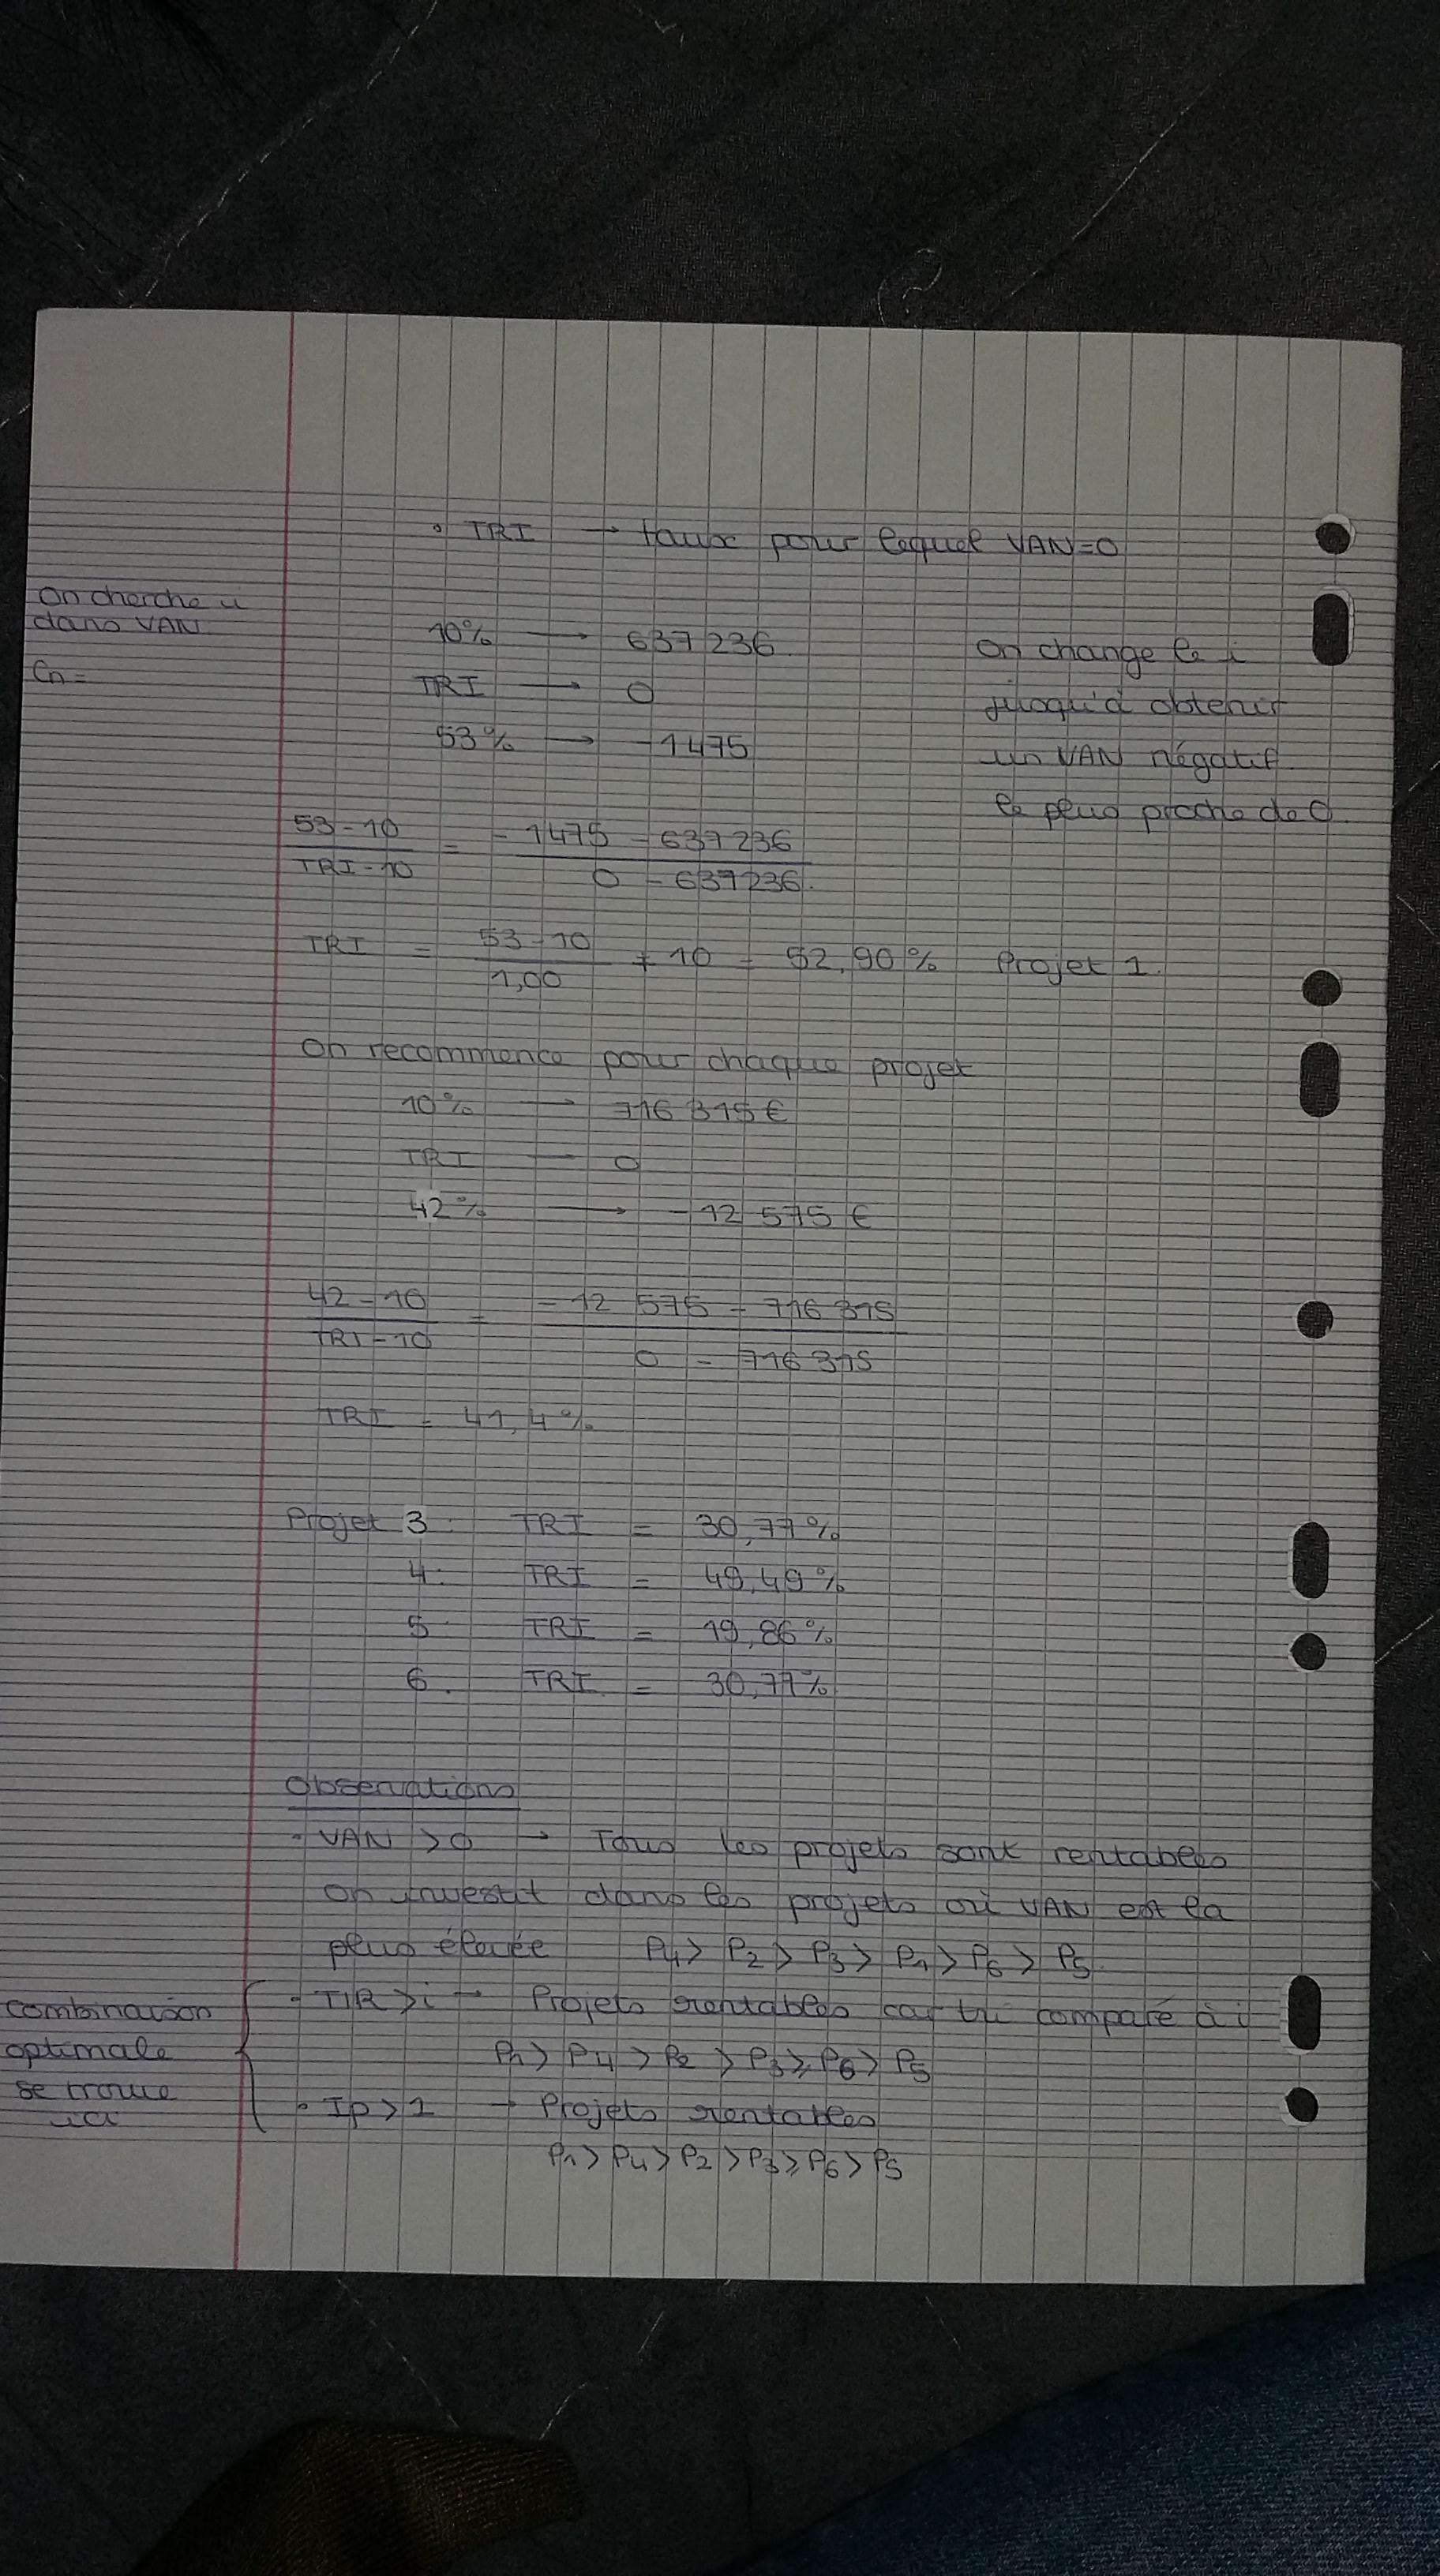 • TRI → taux pour lequel VAN=0
On cherche i
dans VAN.
Cn=
10% → 637 236.
TRI → 0
53% → -1475
On change le i
jusqu'à obtenir
un VAN négatif
le plus proche de 0.
53-10 / TRI-10 = -1475 - 637236 / 0 - 637236.
TRI = 53-10 / 1,00 + 10 = 52,90% Projet 1.
On recommence pour chaque projet
10% → 716 315€
TRI — 0
42% → -12 575 €
42-10 / TRI-10 = -12 575 - 716 315 / 0 - 716 315
TRI = 41,4%
Projet 3: TRI = 30,77%
4: TRI = 49,49%
5 TRI = 19,86%
6. TRI = 30,77%
Observations
• VAN >0 → Tous les projets sont rentables
on investit dans les projets où VAN est la
plus élevée P4> P2 > P3 > P1 > P6 > P5
Combinaison
optimale
se trouve
ici
• TIR >i → Projets rentables car tri comparé à i
P1 > P4 > P2 > P3 ⩾ P6 > P5
• Ip >1 → Projets rentables
P1 > P4 > P2 > P3 ⩾ P6 > P5